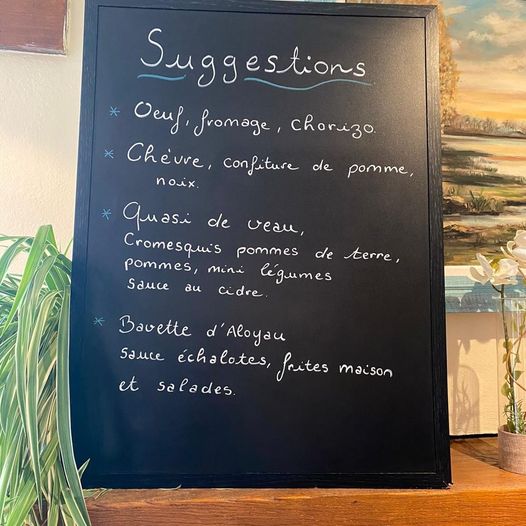 Suggestions
* Oeuf, fromage, chorizo.
* Chèvre, confiture de pomme,
noix.
* Quasi de veau,
Cromesquis pommes de terre,
pommes, mini légumes
sauce au cidre.
* Bavette d'Aloyau
sauce échalotes, frites maison
et salades.